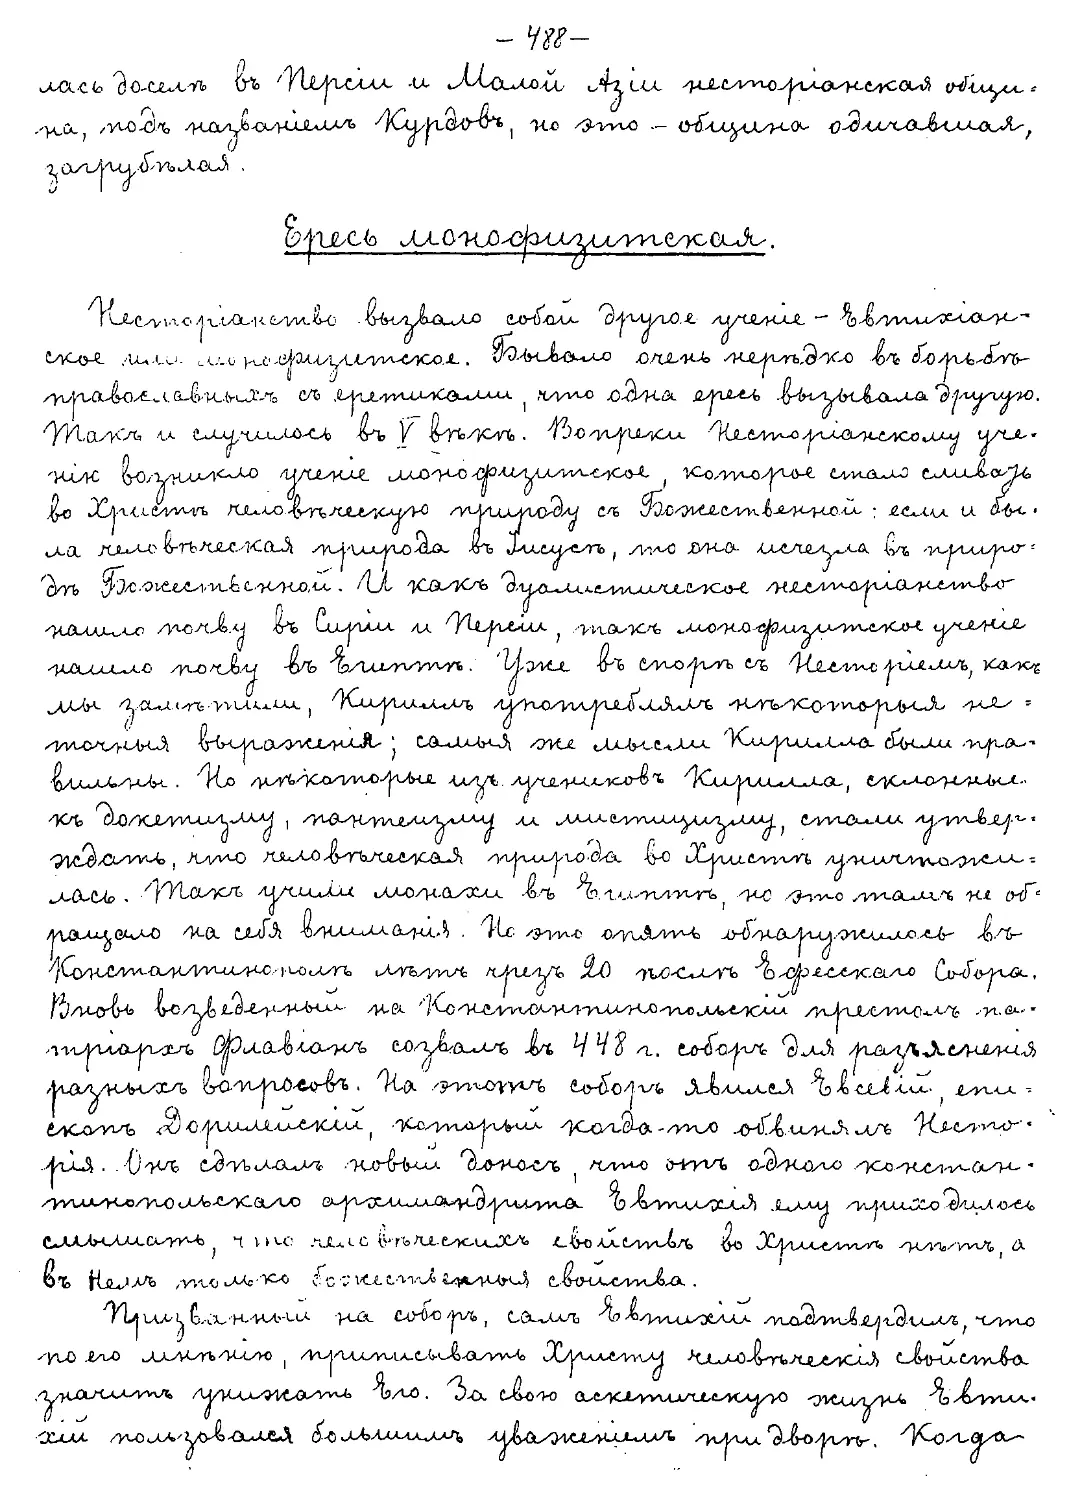 — 488 —
лась доселѣ въ Персіи и Малой Азіи несторіанская общи-
на, подъ названіемъ Курдовъ, но это – община одичавшая,
загрубѣлая.
Ересь монофизитская.
Несторіанство вызвало собой другое ученіе – Евтихіан-
ское или монофизитское. Бывало очень нерѣдко въ борьбѣ
православныхъ съ еретиками, что одна ересь вызывала другую.
Такъ и случилось въ V вѣкѣ. Вопреки Несторіанскому уче-
нію возникло ученіе монофизитское, которое стало сливать
во Христѣ человѣческую природу съ Божественной: если и бы-
ла человѣческая природа въ Іисусѣ, то она исчезла въ приро-
дѣ Божественной. И какъ дуалистическое несторіанство
нашло почву въ Сиріи и Персіи, такъ монофизитское ученіе
нашло почву въ Египтѣ. Уже въ спорѣ съ Несторіемъ, какъ
мы замѣтили, Кириллъ употреблялъ нѣкоторыя не-
точныя выраженія; самыя же мысли Кирилла были пра-
вильны. Но нѣкоторые изъ учениковъ Кирилла, склонные
къ докетизму, пантеизму и мистицизму, стали утвер-
ждать, что человѣческая природа во Христѣ уничтожи-
лась. Такъ учили монахи въ Египтѣ, но это тамъ не об-
ращало на себя вниманія. Но это опять обнаружилось въ
Константинополѣ лѣтъ чрезъ 20 послѣ Ефесскаго Собора.
Вновь возведенный на Константинопольскій престолъ па-
тріархъ Флавіанъ созвалъ въ 448 г. соборъ для разъясненія
разныхъ вопросовъ. На этотъ соборъ явился Евсевій, епи-
скопъ Дорилейскій, который когда-то обвинялъ Несто-
рія. Онъ сдѣлалъ новый доносъ, что отъ одного констан-
тинопольскаго архимандрита Евтихія ему приходилось
слышать, что человѣческихъ свойствъ во Христѣ нѣтъ, а
въ Немъ только божественныя свойства.
Призванный на соборъ, самъ Евтихій подтвердилъ, что
по его мнѣнію, приписывать Христу человѣческія свойства
значитъ унижать Его. За свою аскетическую жизнь Евти-
хій пользовался большимъ уваженіемъ при дворѣ. Когда